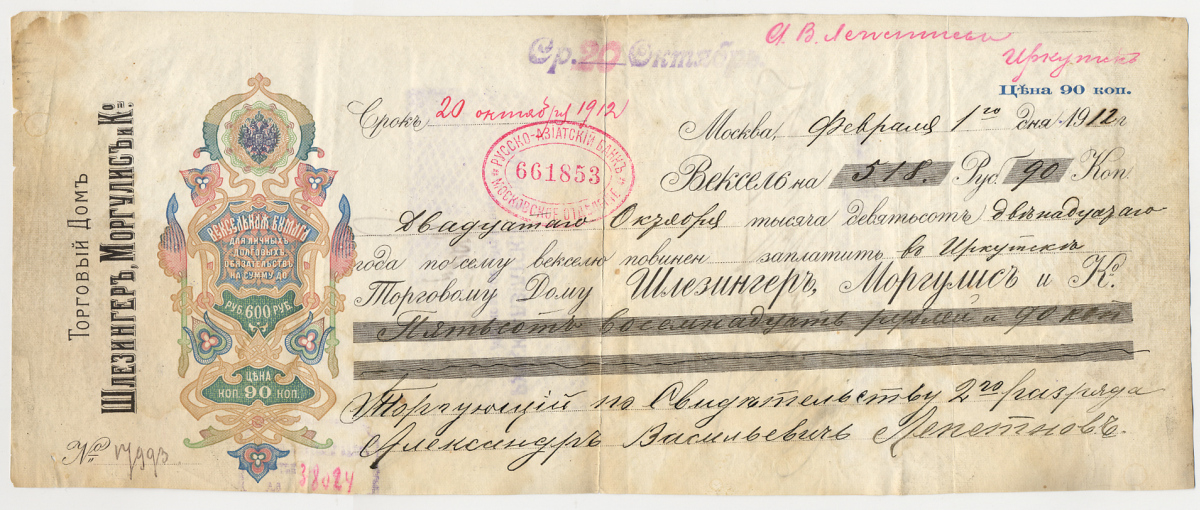 Ср. 20 Октября.
А. В. Лепетнова
Иркутскъ
Цѣна 90 коп.
Срокъ 20 октября 1912
Москва, Февраля 1го дня 1912 г
РУССКО-АЗІАТСКІЙ БАНКЪ
661853
МОСКОВСКОЕ ОТДѢЛЕНІЕ
Вексель на 518. Руб. 90 Коп.
Двадцатаго Октября тысяча девятьсотъ двѣнадцатаго
года по сему векселю повинен заплатить въ Иркутскѣ
Торговому Дому Шлезингеръ, Моргулисъ и Ко.
Пятьсотъ восемнадцать рублей и 90 коп
Торгующій по Свидѣтельству 2го разряда
Александръ Васильевичъ Лепетновъ.
Торговый Домъ
Шлезингеръ, Моргулисъ и Ко.
ВЕКСЕЛЬНАЯ БУМАГА
ДЛЯ ЛИЧНЫХЪ
ДОЛГОВЫХЪ
ОБЯЗАТЕЛЬСТВЪ
НА СУММУ ДО
РУБ. 600 РУБ.
ЦѢНА
КОП. 90 КОП.
№ 17993
38024